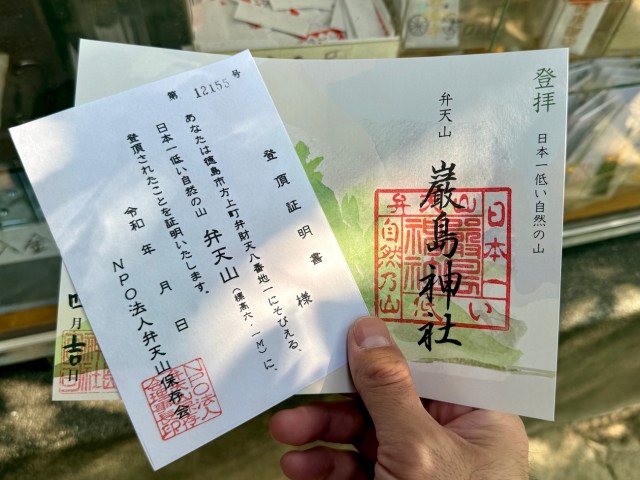 第 12155 号
登頂証明書
様
あなたは徳島市方上町弁財天八番地一にそびえる、
日本一低い自然の山 弁天山(標高六・一M)に、
登頂されたことを証明いたします。
令和 年 月 日
NPO法人弁天山保存会
登拝 日本一低い自然の山
弁天山
巌島神社
日本一
山
弁
自然乃山
月吉日